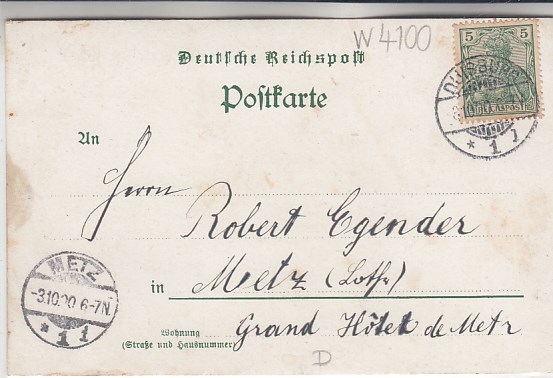 W 4100
Deutsche Reichspost
Postkarte
5 5
DUISBURG
* 1 j
An
Herrn
Robert Egender
in Metz (Lothr)
METZ
-3.10.00.6-7N.
* 1 1
Wohnung
(Straße und Hausnummer)
Grand Hôtel de Metz
D